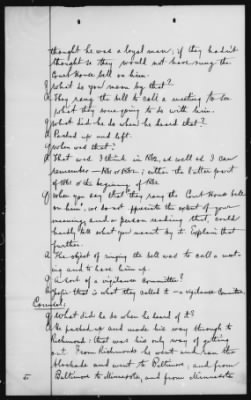 thought he was a loyal man; if they hadn't
thought so they would not have rung the
Court House bell on him.
Q What do you mean by that?
A They rang the bell to call a meeting to see
what they were going to do with him.
Q What did he do when he heard that?
A Packed up and left.
Q When was that?
A That was I think in 1862, as well as I can
remember — 1861 or 1862; either the latter part
of 1861 or the beginning of 1862
Q When you say that they rang the Court House bell
on him, we do not appreciate the extent of your
meaning, and a person reading that, could
hardly tell what you meant by it. Explain that
further.
A The object of ringing the bell was to call a meet-
ing and to have him up.
Q A sort of a vigilance Committee?
A Yes that is what they called it — a vigilance Committee.
Counsel:
Q What did he do when he heard of it?
A He packed up and made his way through to
Richmond: that was his only way of getting
out. From Richmond he went and ran the
blockade and went to Baltimore, and from
Baltimore to Minnesota, and from Minnesota